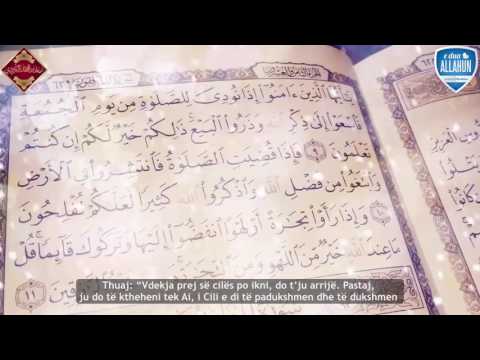 e dua
ALLAHUN
يَٰٓأَيُّهَا ٱلَّذِينَ ءَامَنُوٓا۟ إِذَا نُودِىَ لِلصَّلَوٰةِ مِن يَوْمِ ٱلْجُمُعَةِ
فَٱسْعَوْا۟ إِلَىٰ ذِكْرِ ٱللَّهِ وَذَرُوا۟ ٱلْبَيْعَ ۚ ذَٰلِكُمْ خَيْرٌ لَّكُمْ إِن كُنتُمْ
تَعْلَمُونَ ٩ فَإِذَا قُضِيَتِ ٱلصَّلَوٰةُ فَٱنتَشِرُوا۟ فِى ٱلْأَرْضِ
وَٱبْتَغُوا۟ مِن فَضْلِ ٱللَّهِ وَٱذْكُرُوا۟ ٱللَّهَ كَثِيرًا لَّعَلَّكُمْ تُفْلِحُونَ
١٠ وَإِذَا رَأَوْا۟ تِجَٰرَةً أَوْ لَهْوًا ٱنفَضُّوٓا۟ إِلَيْهَا وَتَرَكُوكَ قَآئِمًا ۚ قُلْ
مَا عِندَ ٱللَّهِ خَيْرٌ مِّنَ ٱللَّهْوِ وَمِنَ ٱلتِّجَٰرَةِ
١١
Thuaj: "Vdekja prej së cilës po ikni, do t'ju arrijë. Pastaj,
ju do të ktheheni tek Ai, i Cili e di të padukshmen dhe të dukshmen